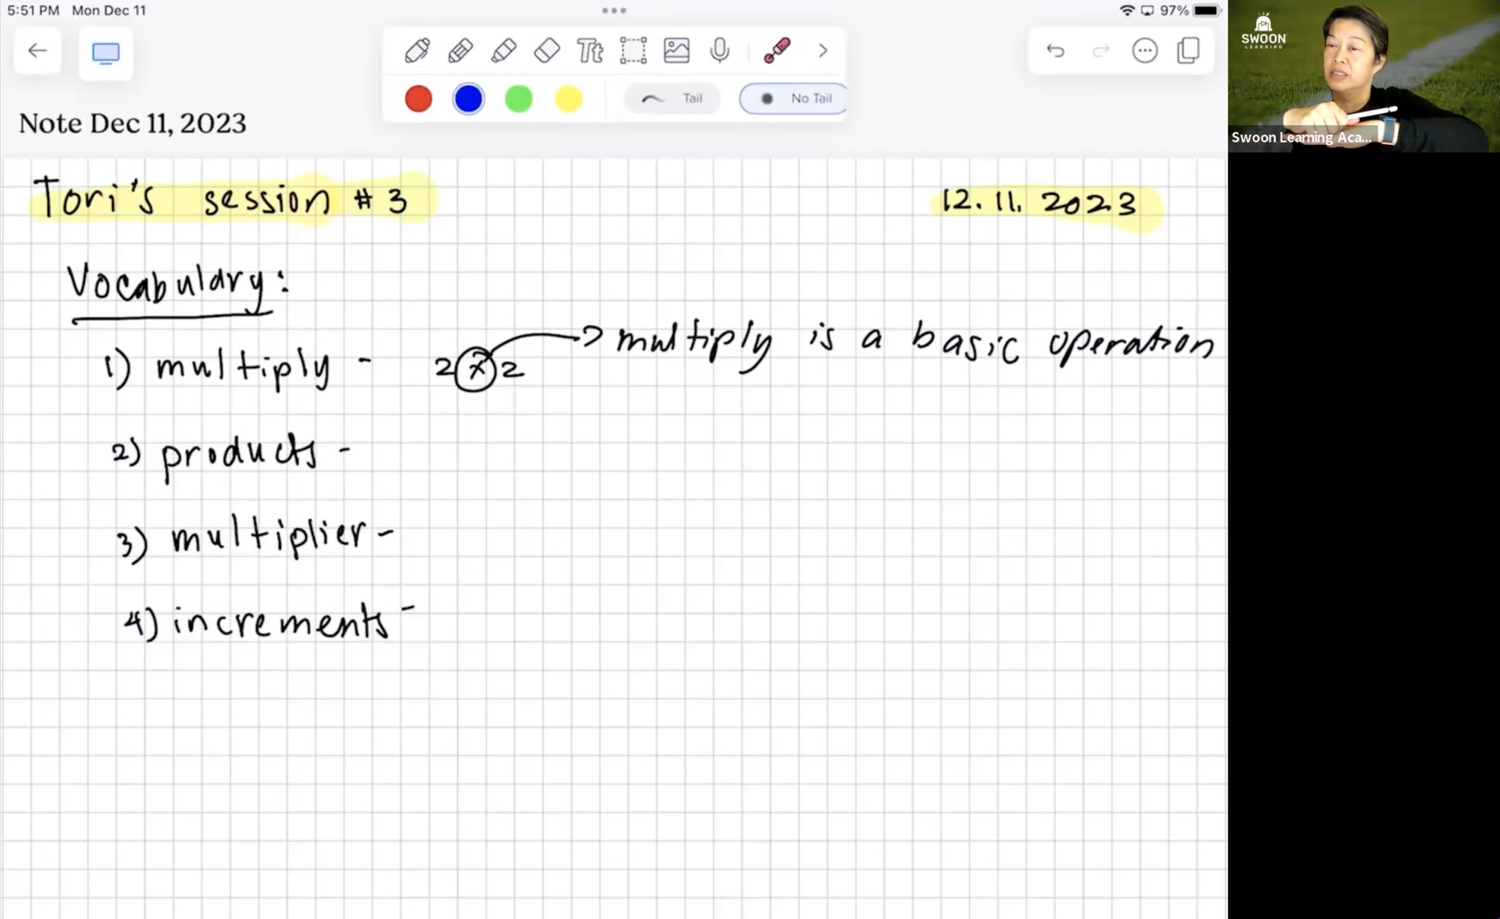 5:51 PM Mon Dec 11
97%
SWOON
LEARNING
Tt
Tail
No Tail
Note Dec 11, 2023
Swoon Learning Aca...
Tori's session # 3
12.11.2023
Vocabulary:
1) multiply - 2 x 2 → multiply is a basic operation
2) products -
3) multiplier -
4) increments -